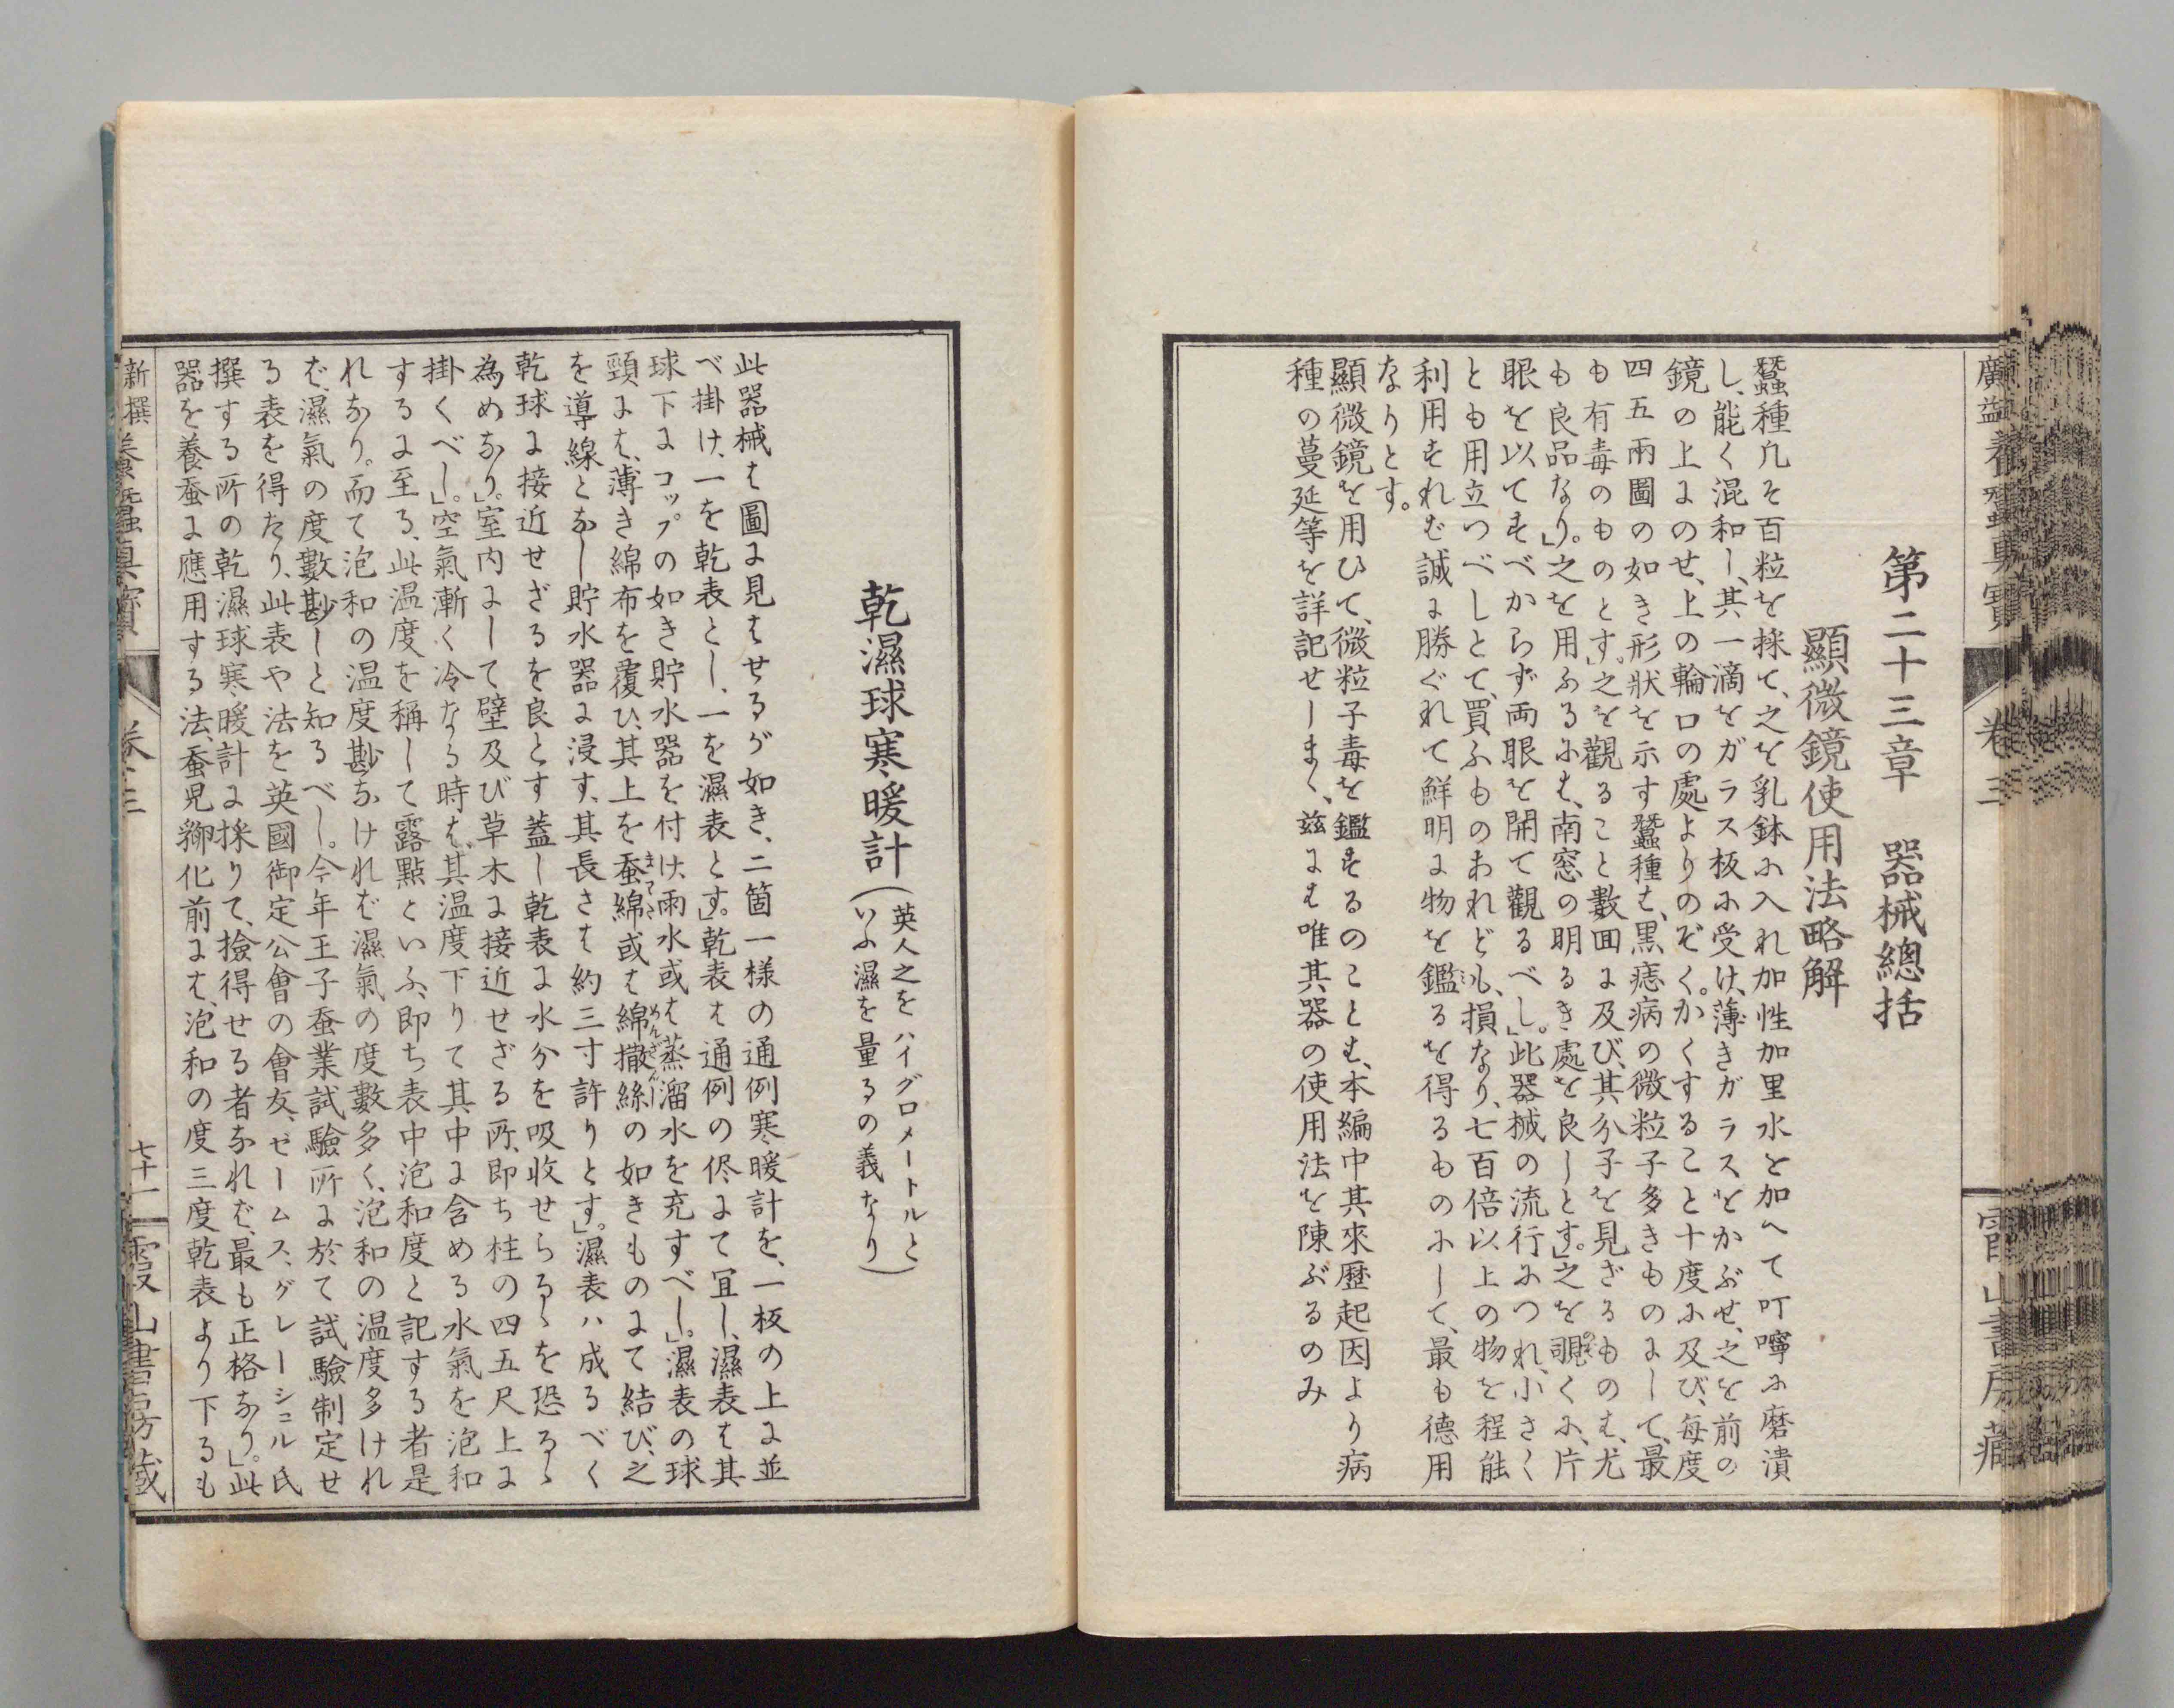 第二十三章 器械總括
顯微鏡使用法略解
蠶種凡そ百粒を採て、之を乳鉢に入れ加性加里水を加へて叮嚀に磨潰
し、能く混和し、其一滴をガラス板に受け、薄きガラスをかぶせ、之を前の
鏡の上にのせ、上の輪口の處よりのぞく。かくすること十度に及び、毎度
四五兩圖の如き形狀を示す蠶種は、黒痣病の微粒子多きものにして、最
も有毒のものとす。」之を觀ること數回に及び、其分子を見ざるものは、尤
も良品なり。」之を用ふるには、南窓の明るき處を良しとす。」之を覗くに、片
眼を以てすべからず両眼を開て觀るべし。」此器械の流行につれ、小さく
とも用立つべしとて、買ふものあれども、損なり、七百倍以上の物を程能
利用すれば誠に勝ぐれて鮮明に物を鑑るを得るものにして、最も德用
なりとす。
顯微鏡を用ひて、微粒子毒を鑑するのことは、本編中其來歷起因より病
種の蔓延等を詳記せしまく、茲には唯其器の使用法を陳ぶるのみ
卷三
乾濕球寒暖計(英人之をハイグロメートルと
いふ濕を量るの義なり)
此器械は圖に見はせるが如き、二箇一様の通例寒暖計を、一板の上に並
べ掛け、一を乾表とし、一を濕表とす。」乾表は通例の侭にて宜し、濕表は其
球下にコップの如き貯水器を付け、雨水或は蒸溜水を充すべし。」濕表の球
頸には、薄き綿布を覆ひ、其上を蚕綿或は綿撒絲の如きものにて結び、之
を導線となし貯水器に浸す、其長さは約三寸許りとす。」濕表ハ成るべく
乾球に接近せざるを良とす蓋し乾表に水分を吸收せらるゝを恐るゝ
為めなり。」室内にして壁及び草木に接近せざる所、即ち柱の四五尺上に
掛くべし。」空氣漸く冷なる時は、其温度下りて其中に含める水氣を泡和
するに至る、此温度を稱して露點といふ、即ち表中泡和度と記する者是
れなり。而て泡和の温度尠なければ濕氣の度數多く、泡和の温度多けれ
ば、濕氣の度數尠しと知るべし。今年王子蚕業試驗所に於て試驗制定せ
る表を得たり、此表や法を英國御定公會の會友、ゼームス、グレーシェル氏
撰する所の乾濕球寒暖計に採りて、撿得せる者なれば、最も正格なり。」此
器を養蚕に應用する法、蚕児孵化前には、泡和の度三度乾表より下るも
新撰養蠶眞寶 卷三 七十一 霞山書房藏